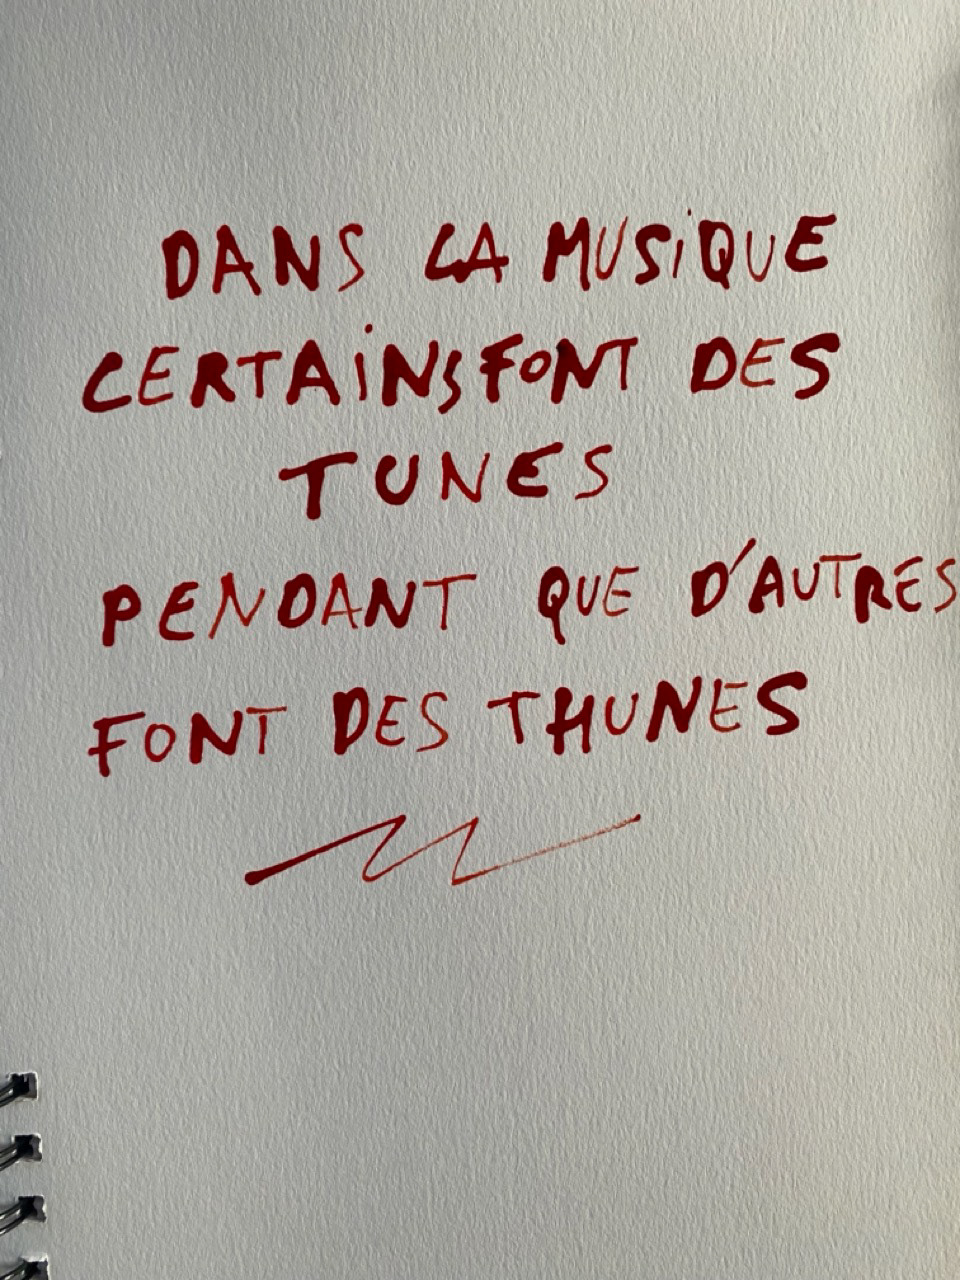 DANS LA MUSiQUE
CERTAiNS FONT DES
TUNES
PENDANT QUE D'AUTRES
FONT DES THUNES